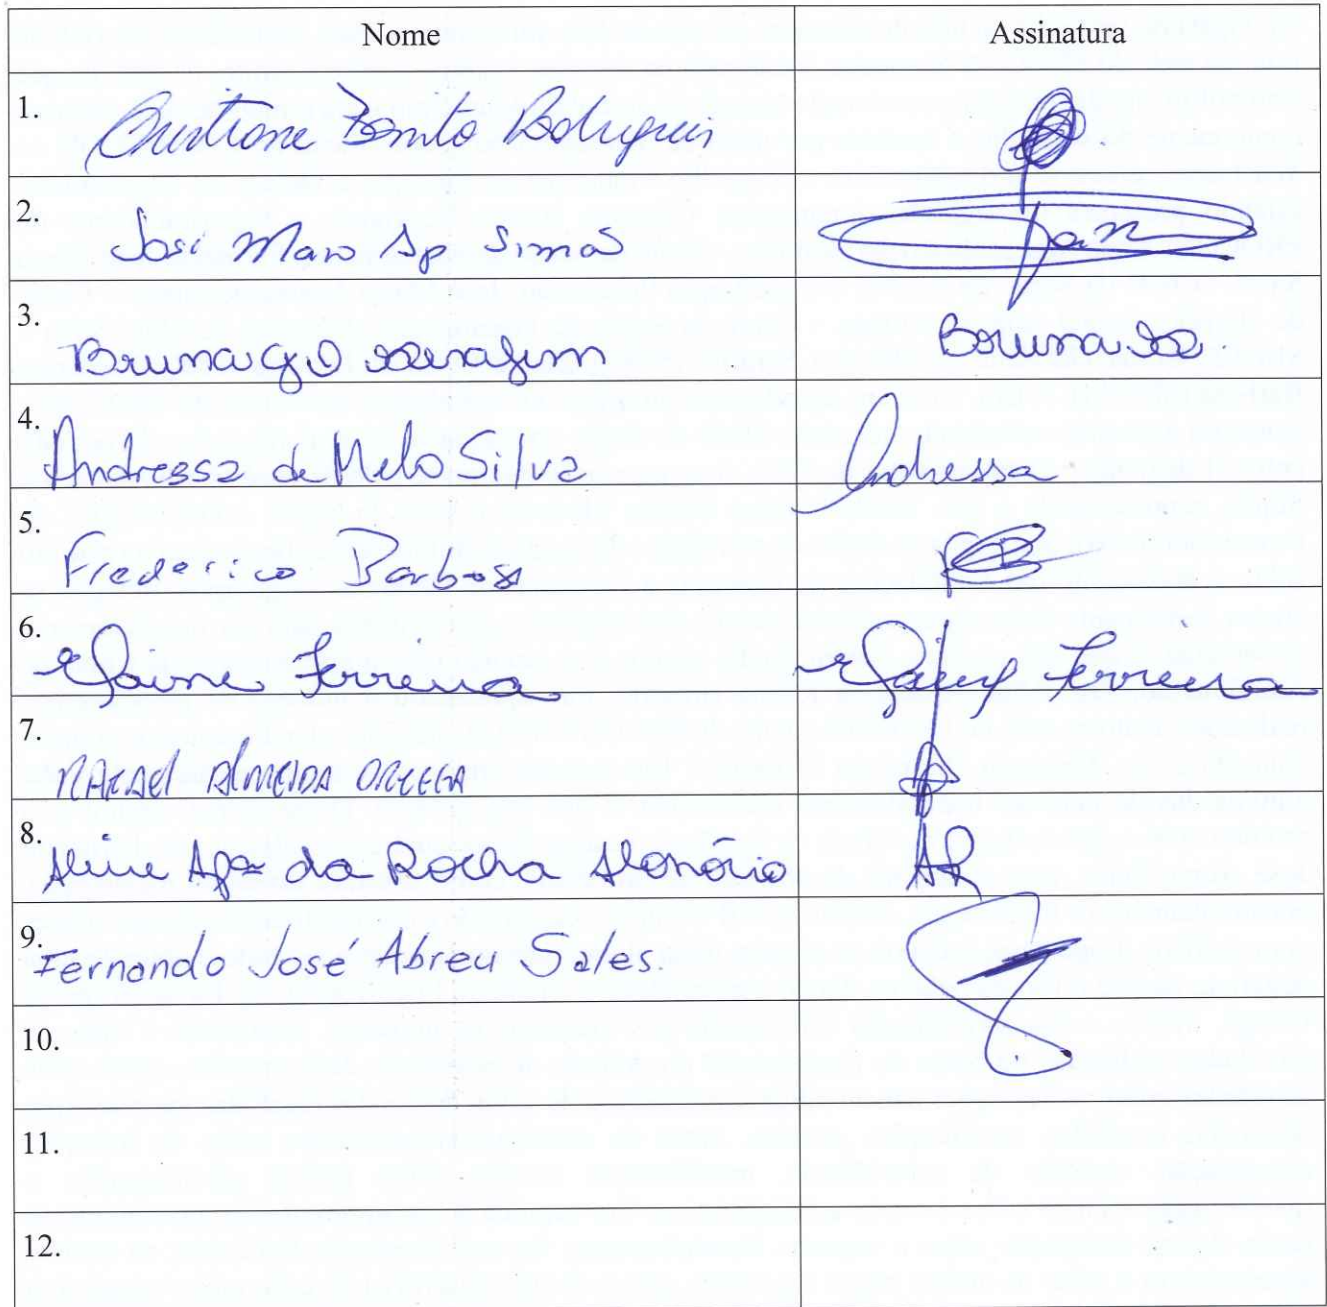 Nome Assinatura
1. Cristiane Bonito Rodrigues
2. José Maro Ap Simos
3. Bruna Gil Serafim Bruna
4. Andressa de Melo Silva Andressa
5. Frederico Barbosa
6. Elaine Ferreira Elaine Ferreira
7. RAFAEL ALMEIDA ORTEGA
8. Aline Apª da Rocha Honório AR
9. Fernando José Abreu Sales.
10.
11.
12.